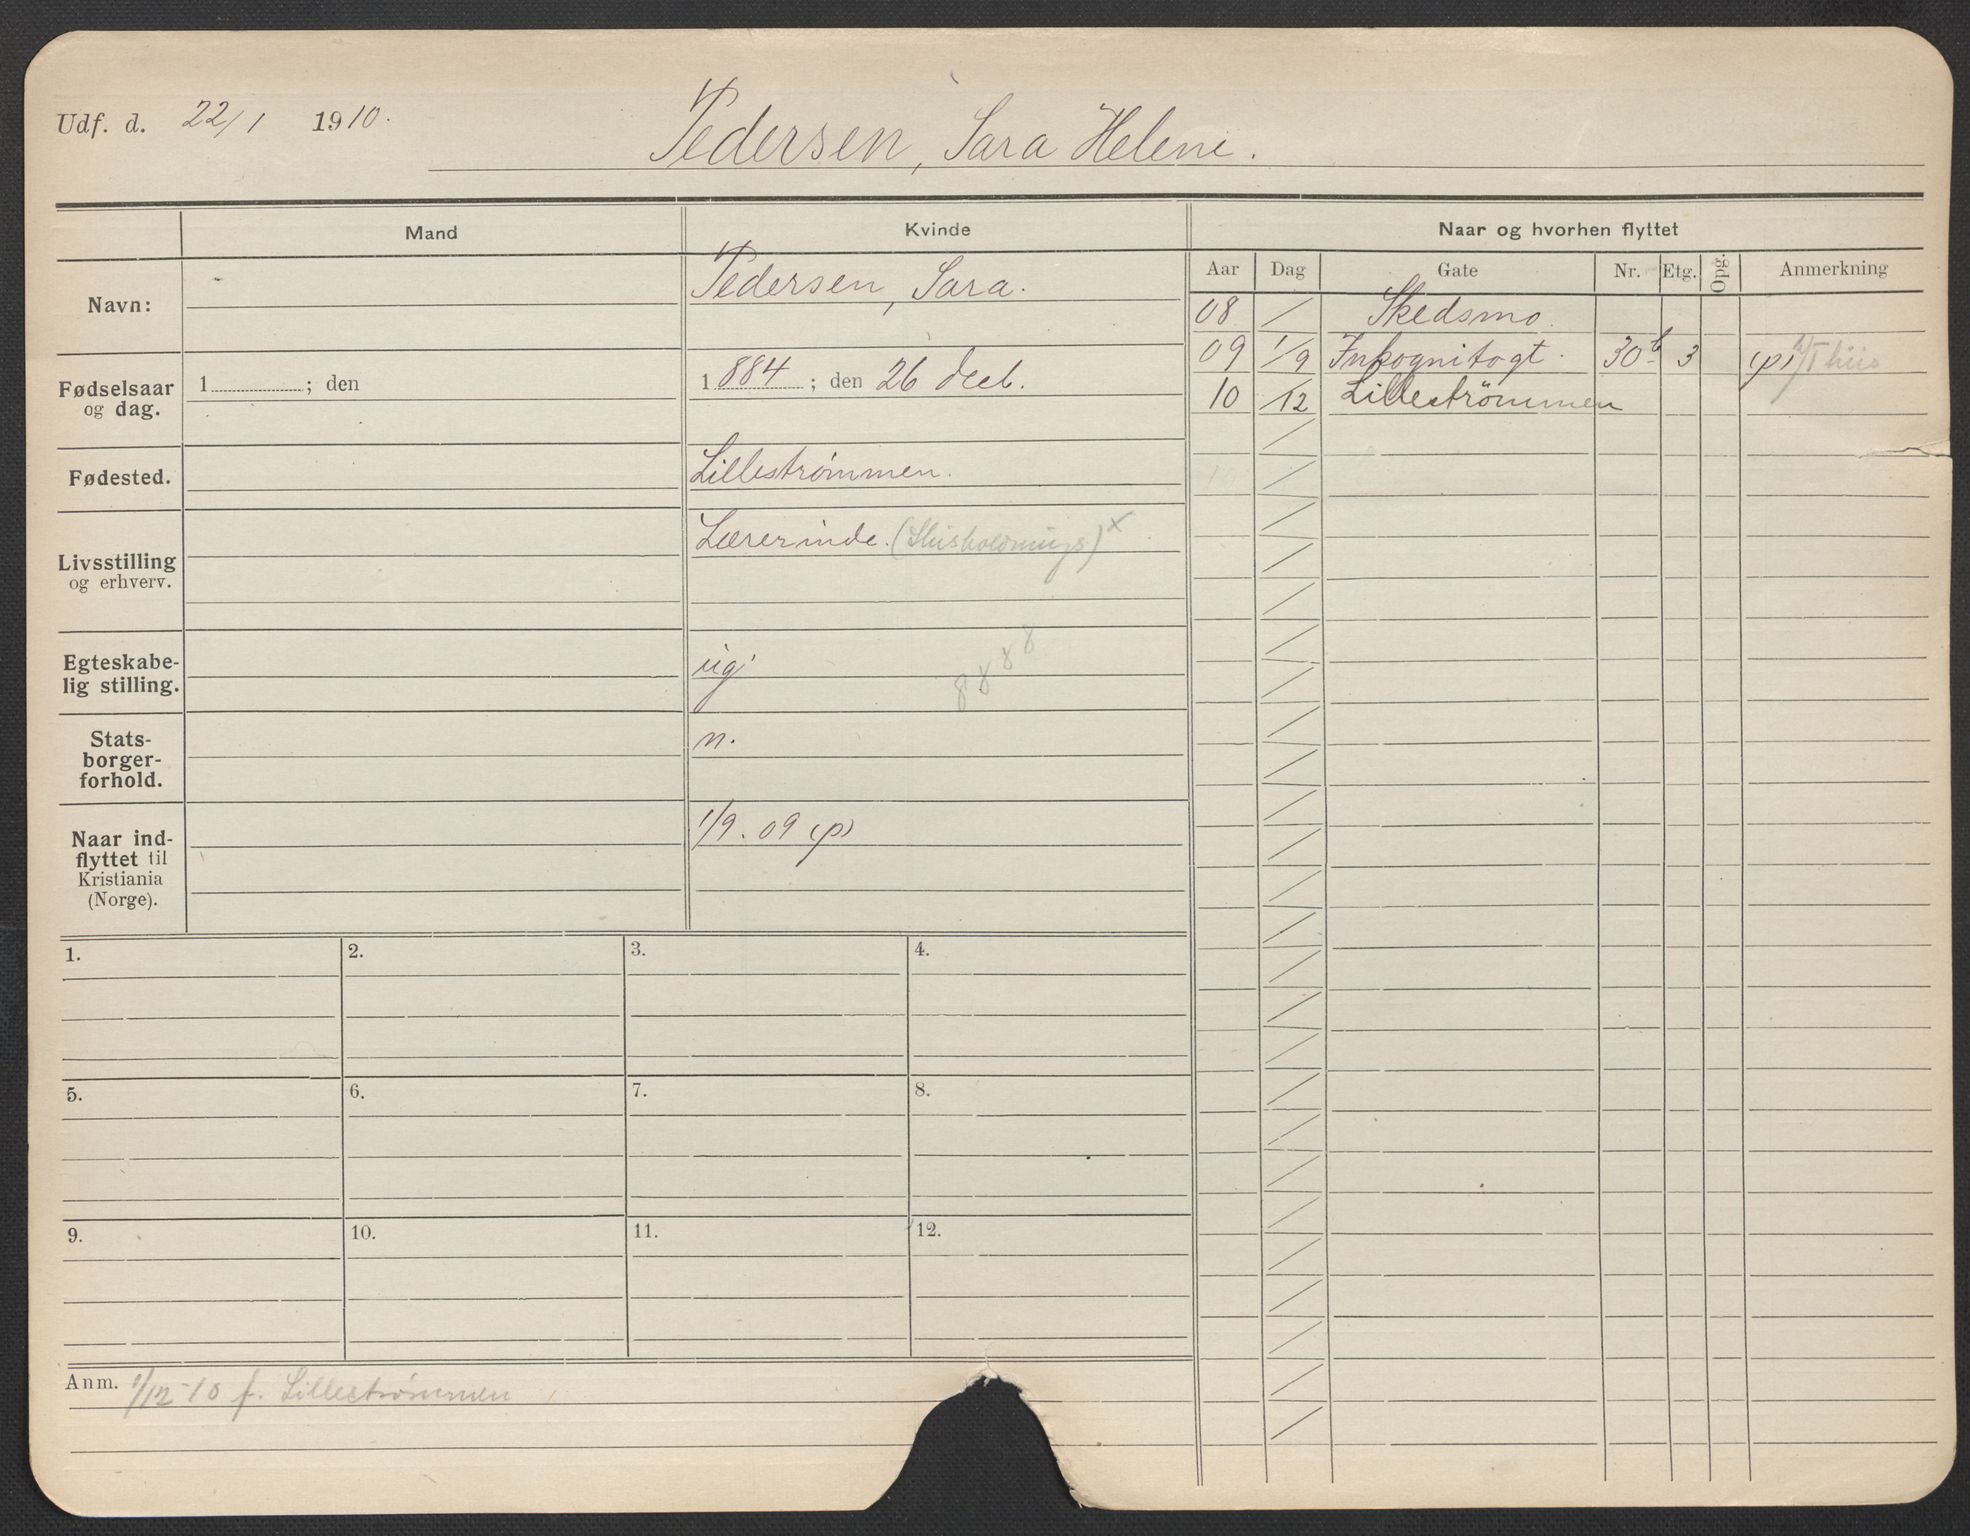 Udf. d. 22/1 1910.
Pedersen, Sara Helene.
Mand
Kvinde
Naar og hvorhen flyttet
Aar Dag Gate Nr. Etg. Opg. Anmerkning
Navn:
Pedersen, Sara.
08 / Skedsmo.
09 1/9 Inkognitogt. 30b 3 (p)
10 /12 Lillestrømmen
Fødselsaar og dag.
1 ; den
1884 ; den 26 decb.
Fødested.
Lillestrømmen.
Livsstilling og erhverv.
Lærerinde. (Husholdnings) x
Egteskabe-
lig stilling.
ug.
8 8 8 8
Stats-
borger-
forhold.
n.
Naar ind-
flyttet til
Kristiania
(Norge).
1/9. 09 (p)
1. 2. 3. 4.
5. 6. 7. 8.
9. 10. 11. 12.
Anm. 1/12-10 f. Lillestrømmen